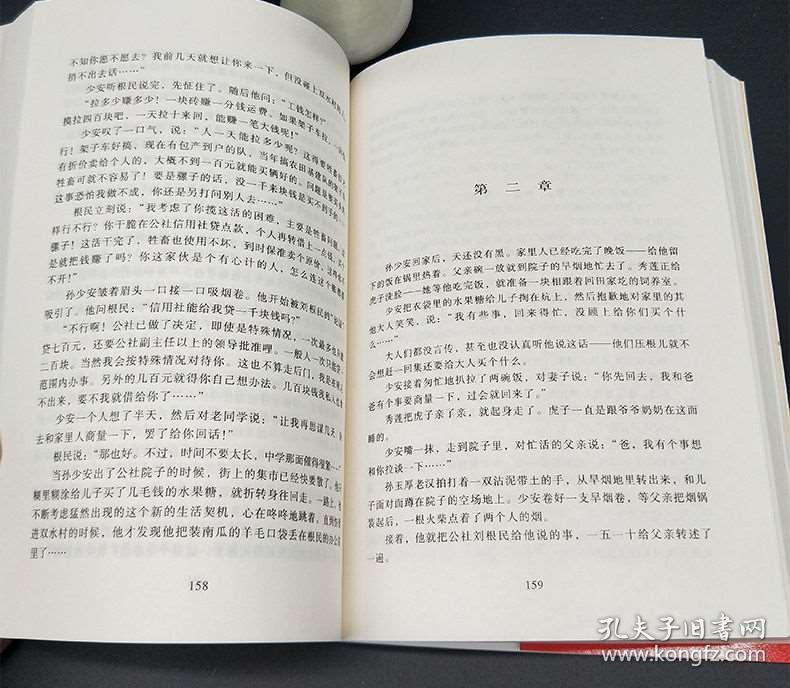 不知你愿不愿去？我前几天就想让你来一下，但没碰上双水村的人，
捎不出去话……”
少安听根民说完，先怔住了。随后他问：“工钱怎样？”
“拉多少赚多少！一块砖赚一分钱运费。如果架子车拉，一回
摸拉四百块吧，一天拉十来回，能赚一笔大钱呢！”
少安叹了一口气，说：“人一天能拉多少呢？这得要牲畜
行！架子车好搞，现在有包产到户的队，当年搞农田基建队的
有折价卖给个人的，大概不到一百元就能买辆好的。问题是要
牲畜可就不容易了！要是骡子的话，没一千来块钱是买不到手的
这事恐怕我做不成，你还是另打问别人去……”
根民立刻说：“我考虑了你揽这活的困难，主要是牲畜问题。
样行不行？你干脆在公社信用社贷点款，个人再转借上一点钱，
骡子！这活干完了，牲畜也使用不坏，到时保准卖个原价，这样
是就把钱赚了吗？你这家伙是个有心计的人，怎么连这个账都
不开！”
孙少安皱着眉头一口接一口吸烟卷。他开始被刘根民的
吸引了。他问根民：“信用社能给我贷一千块钱吗？”
“不行啊！公社已做了决定，即使是特殊情况，一次最多也只能
贷七百元，还要公社副主任以上的领导批准哩。一般人一次只能贷
二百块。当然我会按特殊情况对待你。这也不算走后门，是在
范围内办事。另外的几百元就得你自己想办法。几百块钱我私人也
不出来，要不我就借给你了……”
少安一个人想了半天，然后对老同学说：“让我再思谋几天，
去和家里人商量一下，罢了给你回话！”
根民说：“那也好。不过，时间不要太长，中学那面催得很紧……”
当孙少安出了公社院子的时候，街上的集市已经快要散了。他
糊里糊涂给儿子买了几毛钱的水果糖，就折转身往回走。一路上，他
不断考虑猛然出现的这个新的生活契机，心在咚咚地跳着。直到
进双水村的时候，他才发现他把装南瓜的羊毛口袋丢在根民的办公室
里了……
158
第二章
孙少安回家后，天还没有黑。家里人已经吃完了晚饭——给他留
下的饭在锅里热着。父亲碗一放就到院子的旱烟地忙去了。秀莲正给
虎子洗脸——她等他吃完饭，就准备一块相跟着回田家圪的饲养室。
少安把衣袋里的水果糖给儿子掏在炕上，然后抱歉地对家里的其
他大人笑笑，说：“我有些事，回来得忙，没顾上给你们买个什
么……”
大人们都没言传，甚至也没认真听他说这话——他们压根儿就不
会想赶一回集还要给大人买个什么。
少安接着匆忙地扒拉了两碗饭，对妻子说：“你先回去，我和爸
爸有个事要商量一下，过会就回来了。”
秀莲把虎子亲了亲，就起身走了。虎子一直是跟爷爷奶奶在这面
睡的。
少安嘴一抹，走到院子里，对忙活的父亲说：“爸，我有个事想
和你拉谈一下……”
孙玉厚老汉拍打着一双沾泥带土的手，从旱烟地里转出来，和儿
子面对面蹲在院子的空场地上。少安卷好一支旱烟卷，等父亲把烟锅
装起后，一根火柴点着了两个人的烟。
接着，他就把公社刘根民给他说的事，一五一十给父亲转述了
一遍。
159
孔夫子旧书网
www.kongfz.com